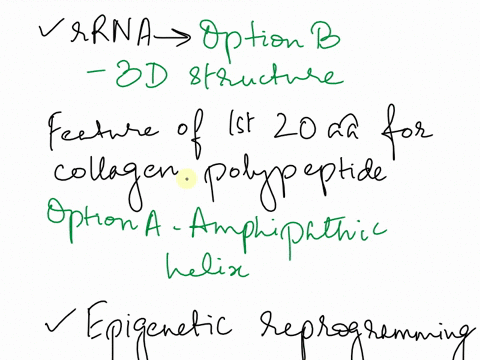 ✓ rRNA → Option B
- 3D structure
Feature of 1st 20 aa for
collagen polypeptide
Option A - Amphipathic
helix
✓ Epigenetic reprogramming